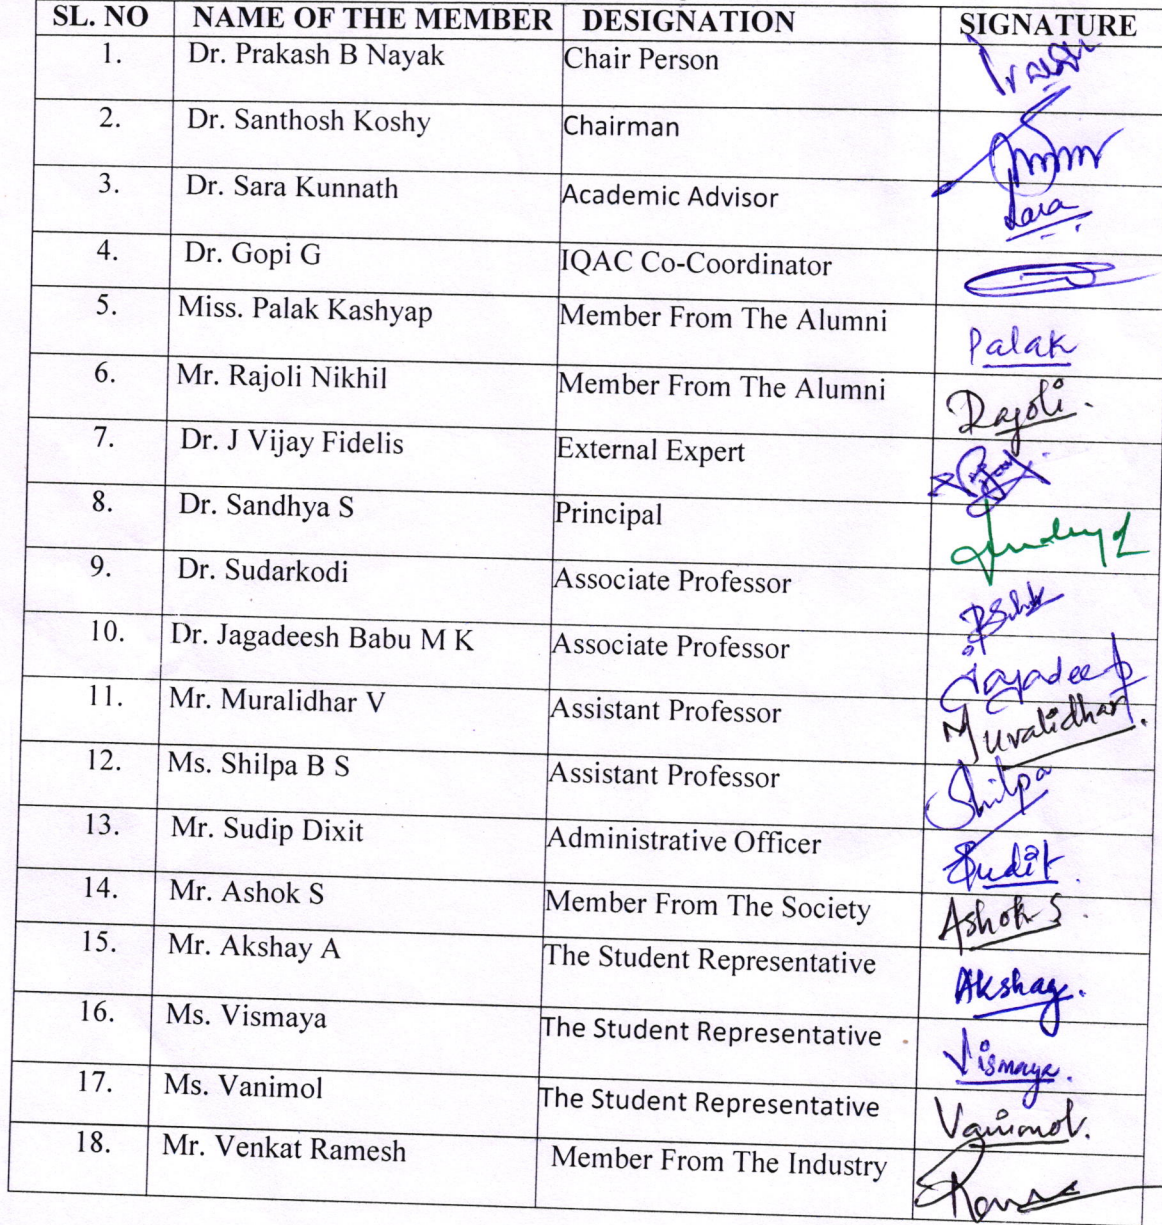 SL. NO NAME OF THE MEMBER DESIGNATION SIGNATURE
1. Dr. Prakash B Nayak Chair Person
2. Dr. Santhosh Koshy Chairman
3. Dr. Sara Kunnath Academic Advisor Sara
4. Dr. Gopi G IQAC Co-Coordinator
5. Miss. Palak Kashyap Member From The Alumni Palak
6. Mr. Rajoli Nikhil Member From The Alumni Rajoli.
7. Dr. J Vijay Fidelis External Expert
8. Dr. Sandhya S Principal
9. Dr. Sudarkodi Associate Professor
10. Dr. Jagadeesh Babu M K Associate Professor
11. Mr. Muralidhar V Assistant Professor Muralidhar.
12. Ms. Shilpa B S Assistant Professor Shilpa
13. Mr. Sudip Dixit Administrative Officer
14. Mr. Ashok S Member From The Society Ashok S.
15. Mr. Akshay A The Student Representative Akshay.
16. Ms. Vismaya The Student Representative Vismaya.
17. Ms. Vanimol The Student Representative Vanimol.
18. Mr. Venkat Ramesh Member From The Industry